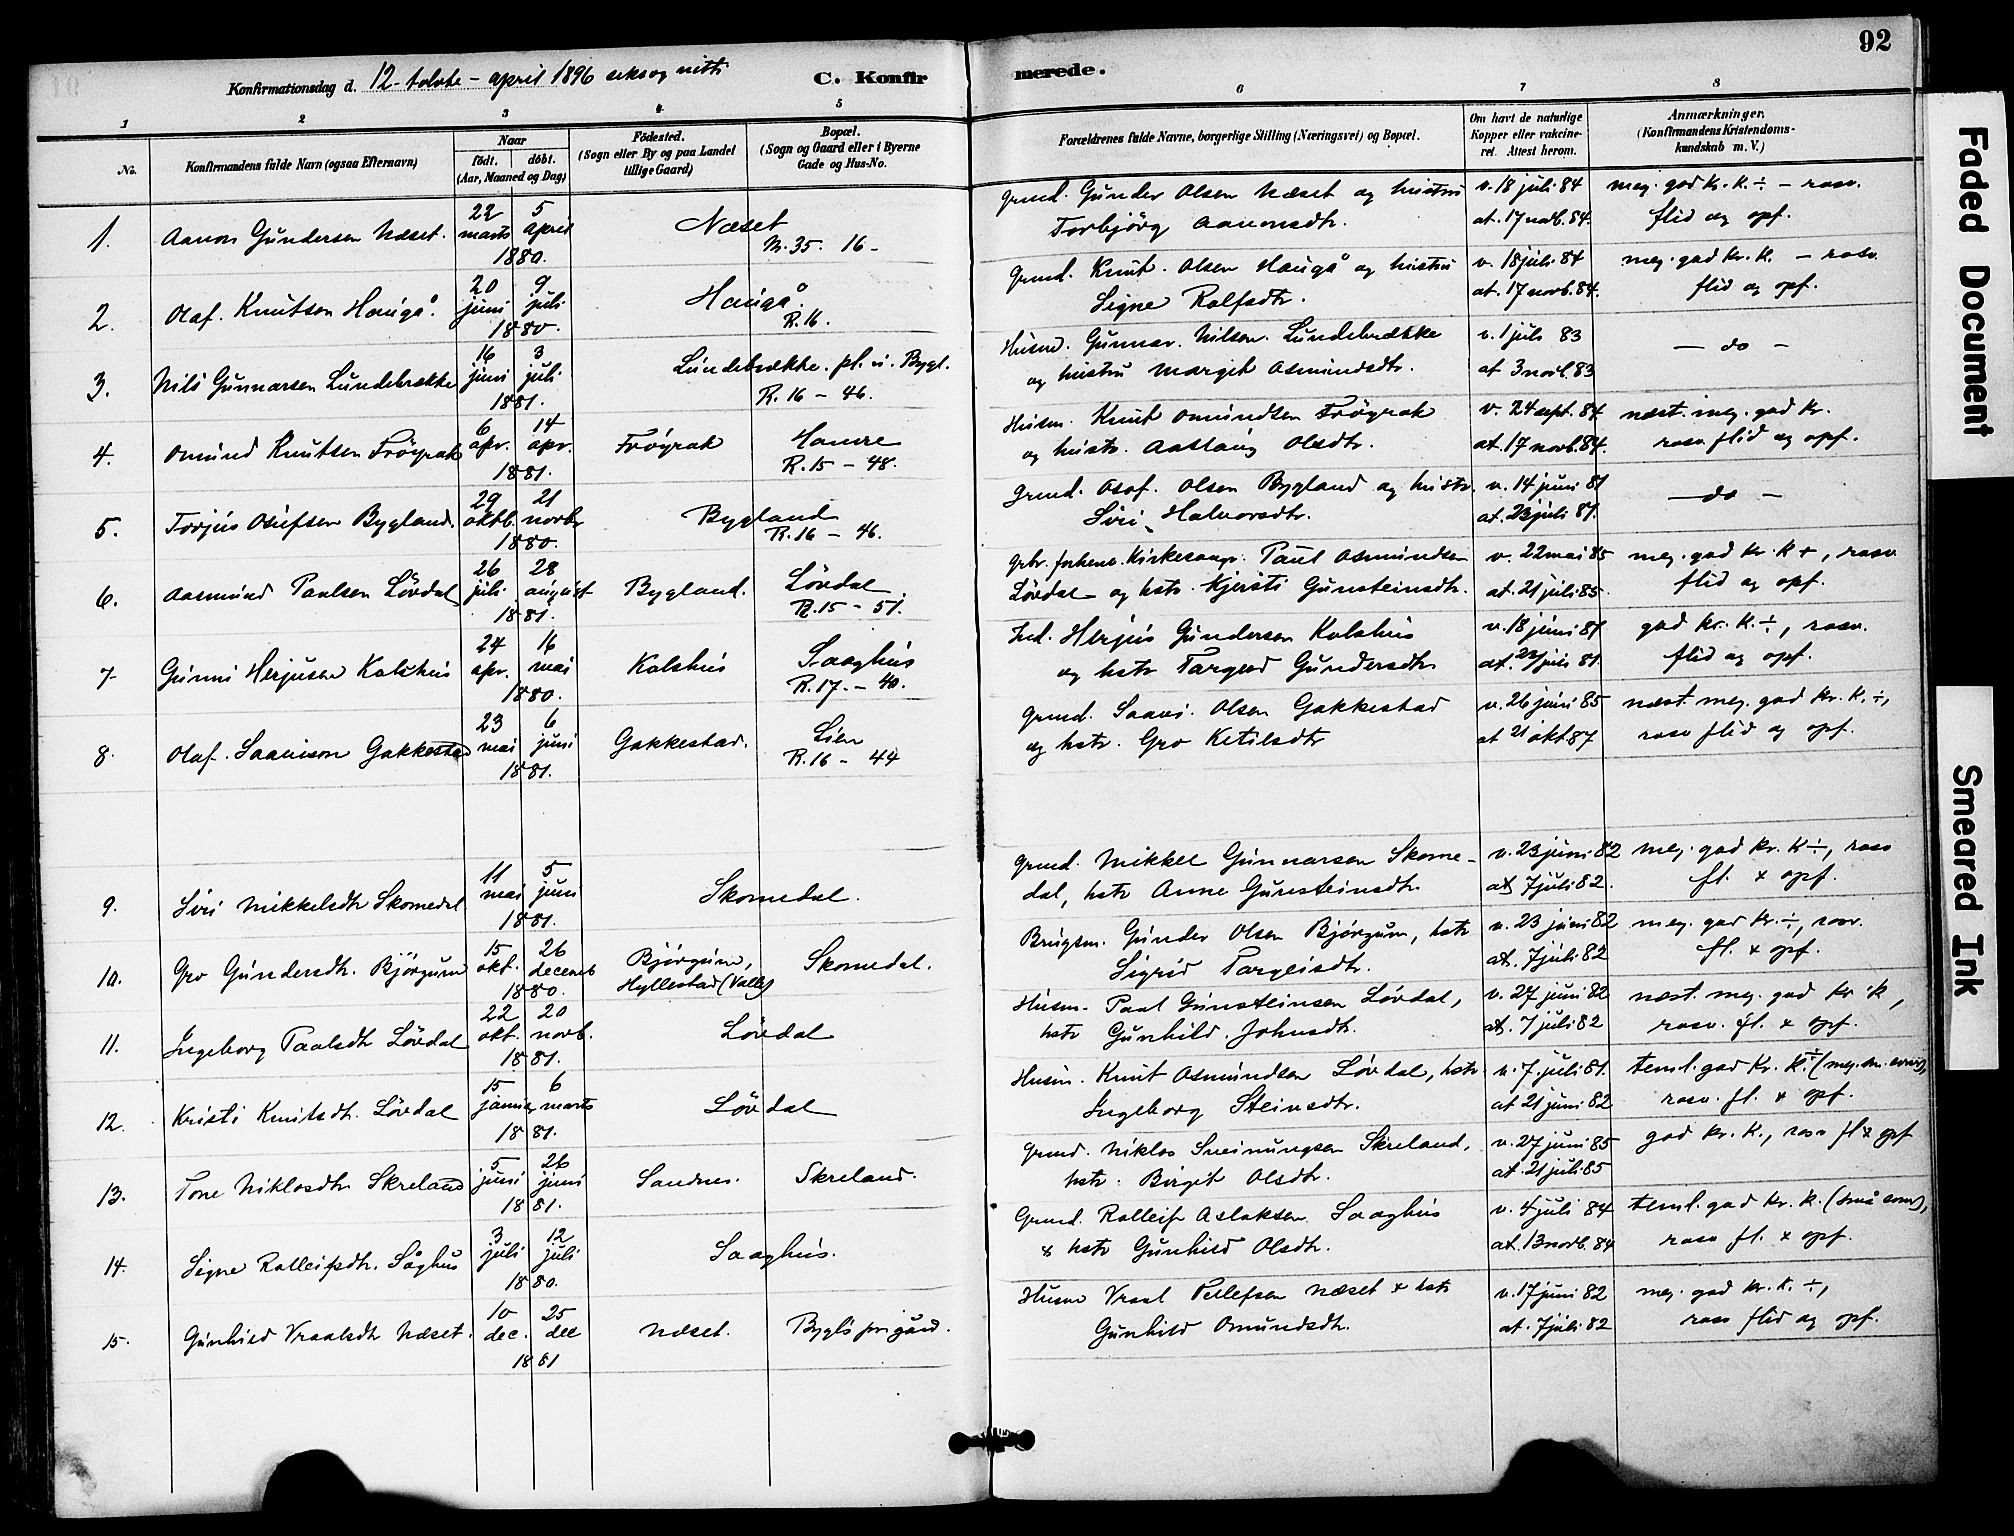 92
Konfirmationsdag d. 12-tolvte - april 1896 seksog nitti
C. Konfirmerede.
1 2 3 4 5 6 7 8
No.
Konfirmandens fulde Navn (ogsaa Efternavn)
Naar
födt. döbt.
(Aar, Maaned og Dag)
Födested.
(Sogn eller By og paa Landet
tillige Gaard)
Bopæl.
(Sogn og Gaard eller i Byerne
Gade og Hus-No.
Forældrenes fulde Navne, borgerlige Stilling (Næringsvei) og Bopæl.
Om havt de naturlige
Kopper eller vakcine-
ret. Attest herom.
Anmærkninger.
(Konfirmandens Kristendoms-
kundskab m. V.)
1. Aanon Gundersen Næset. 22 marts 5 april 1880. Næset N. 35. 16 -
Grmd. Gunder Olsen Næset og hustru
Torbjörg Aanonsdtr.
v. 18 juli 84
at. 17 novb. 84.
meg. god kr. K. ÷ - rosv.
flid og opf.
2. Olaf Knutsen Haugå. 20 juni 9 juli 1880. Haugå. R. 16.
Grmd. Knut Olsen Haugå og hustru
Signe Rolfsdtr.
v. 18 juli 84
at. 17 novb. 84.
meg. god kr. K. - rosv
flid og opf.
3. Nils Gunnarsen Lundebrække 16 juni 3 juli 1881. Lundebrække. pl. u. Bygl. R. 16 - 46.
Husmd. Gunnar Nilsen Lundebrække
og hustru Margit Asmundsdtr.
v. 1 juli 83
at 3 novb. 83
- do -
4. Omund Knutsen Fröyrak 6 apr. 14 apr. 1881. Fröyrak Hamre R. 15 - 48.
Husm. Knut Omundsen Fröyrak
og hustr. Aaslaug Olsdtr.
v. 24 sept. 84
at. 17 novb. 84.
næst. meg. god kr.
rosv flid og opf.
5. Torjus Osufsen Bygland. 29 oktb. 21 novbr 1880. Bygland R. 16 - 46.
Grmd. Osof. Olsen Bygland og hustr.
Siri Halvorsdtr.
v. 14 juni 81
at. 23 juli 81.
- do -
6. Aasmund Paulsen Lövdal 26 juli 28 august 1881. Bygland. Lövdal R. 15 - 51.
Gbr. forhenv. Kirkesang. Paul Asmundsen
Lövdal og hstr. Kjersti Gunsteinsdtr.
v. 22 mai 85
at. 21 juli 85.
meg. god kr. K +, rosv
flid og opf.
7. Gunni Herjusen Kalshus 24 apr. 16 mai 1880. Kalshus Saaghus R. 17. - 40.
Ind. Herjus Gundersen Kalshus
og hstr Targerd Gundersdtr
v. 18 juni 81
at. 23 juli 81.
god kr. K. ÷, rosv.
flid og opf.
8. Olaf Saavison Gakkestad 23 mai 6 juni 1881. Gakkestad. Lien R. 16 - 44
Grmd. Saavi Olsen Gakkestad
og hstr. Gro Ketilsdtr
v. 26 juni 85
at 21 okt. 87
næst. meg. god kr. K. ÷,
rosv flid og opf.
9. Siri Mikkelsdtr Skomedal 11 mai 5 juni 1881. Skomedal.
Grmd. Mikkel Gunnarsen Skome-
dal, hstr Anne Gunsteinsdtr.
v. 23 juni 82
at. 7 juli 82.
meg. god kr. K ÷, rosv
fl. & opf.
10. Gro Gundersdtr. Björgum 15 okt. 26 decemb 1880. Björgum, Hyllestad (Valle) Skomedal.
Brugsm. Gunder Olsen Björgum, hstr
Sigrid Targeisdtr.
v. 23 juni 82
at. 7 juli 82
meg. god kr. ÷, rosv.
fl. & opf.
11. Ingeborg Paalsdtr Lövdal 22 okt. 20 novb. 1881. Lövdal
Husm. Paal Gunsteinsen Lövdal,
hstr Gunhild Johnsdtr.
v. 27 juni 82
at. 7 juli 82
næst. meg. god kr K,
rosv. fl. & opf.
12. Kristi Knutsdtr. Lövdal 15 januar 6 marts 1881. Lövdal
Husm. Knut Asmundsen Lövdal, hstr.
Ingeborg Steinsdtr.
v. 7. juli 81.
at 21 juni 82
teml. god kr. K. ÷ (meg. sm. evner),
rosv. fl. & opf.
13. Tone Niklosdtr Skreland 5 juni 26 juni 1881. Sandnes. Skreland.
Grmd. Niklos Sveinungsen Skreland,
hstr. Birgit Olsdtr.
v. 27 juni 85
at. 21 juli 85
god kr. K., rosv fl & opf
14. Signe Rolleifsdtr. Såghus 3 juli 12 juli 1880. Saaghus.
Grmd. Rolleif Aslaksen Saaghus
& hstr Gunhild Olsdtr.
v. 4 juli 84
at. 13 novb. 84
teml. god kr. K. (små evner),
rosv fl. & opf.
15. Gunhild Vraalsdtr Næset. 10 dec. 25 dec 1881 Næset. Bygls prgård.
Husm Vraal Tellefsen Næset & hstr
Gunhild Omundsdtr.
v. 17 juni 82
at. 7 juli 82
meg. god kr. K. ÷,
rosv flid og opf.
Faded Document
Smeared Ink